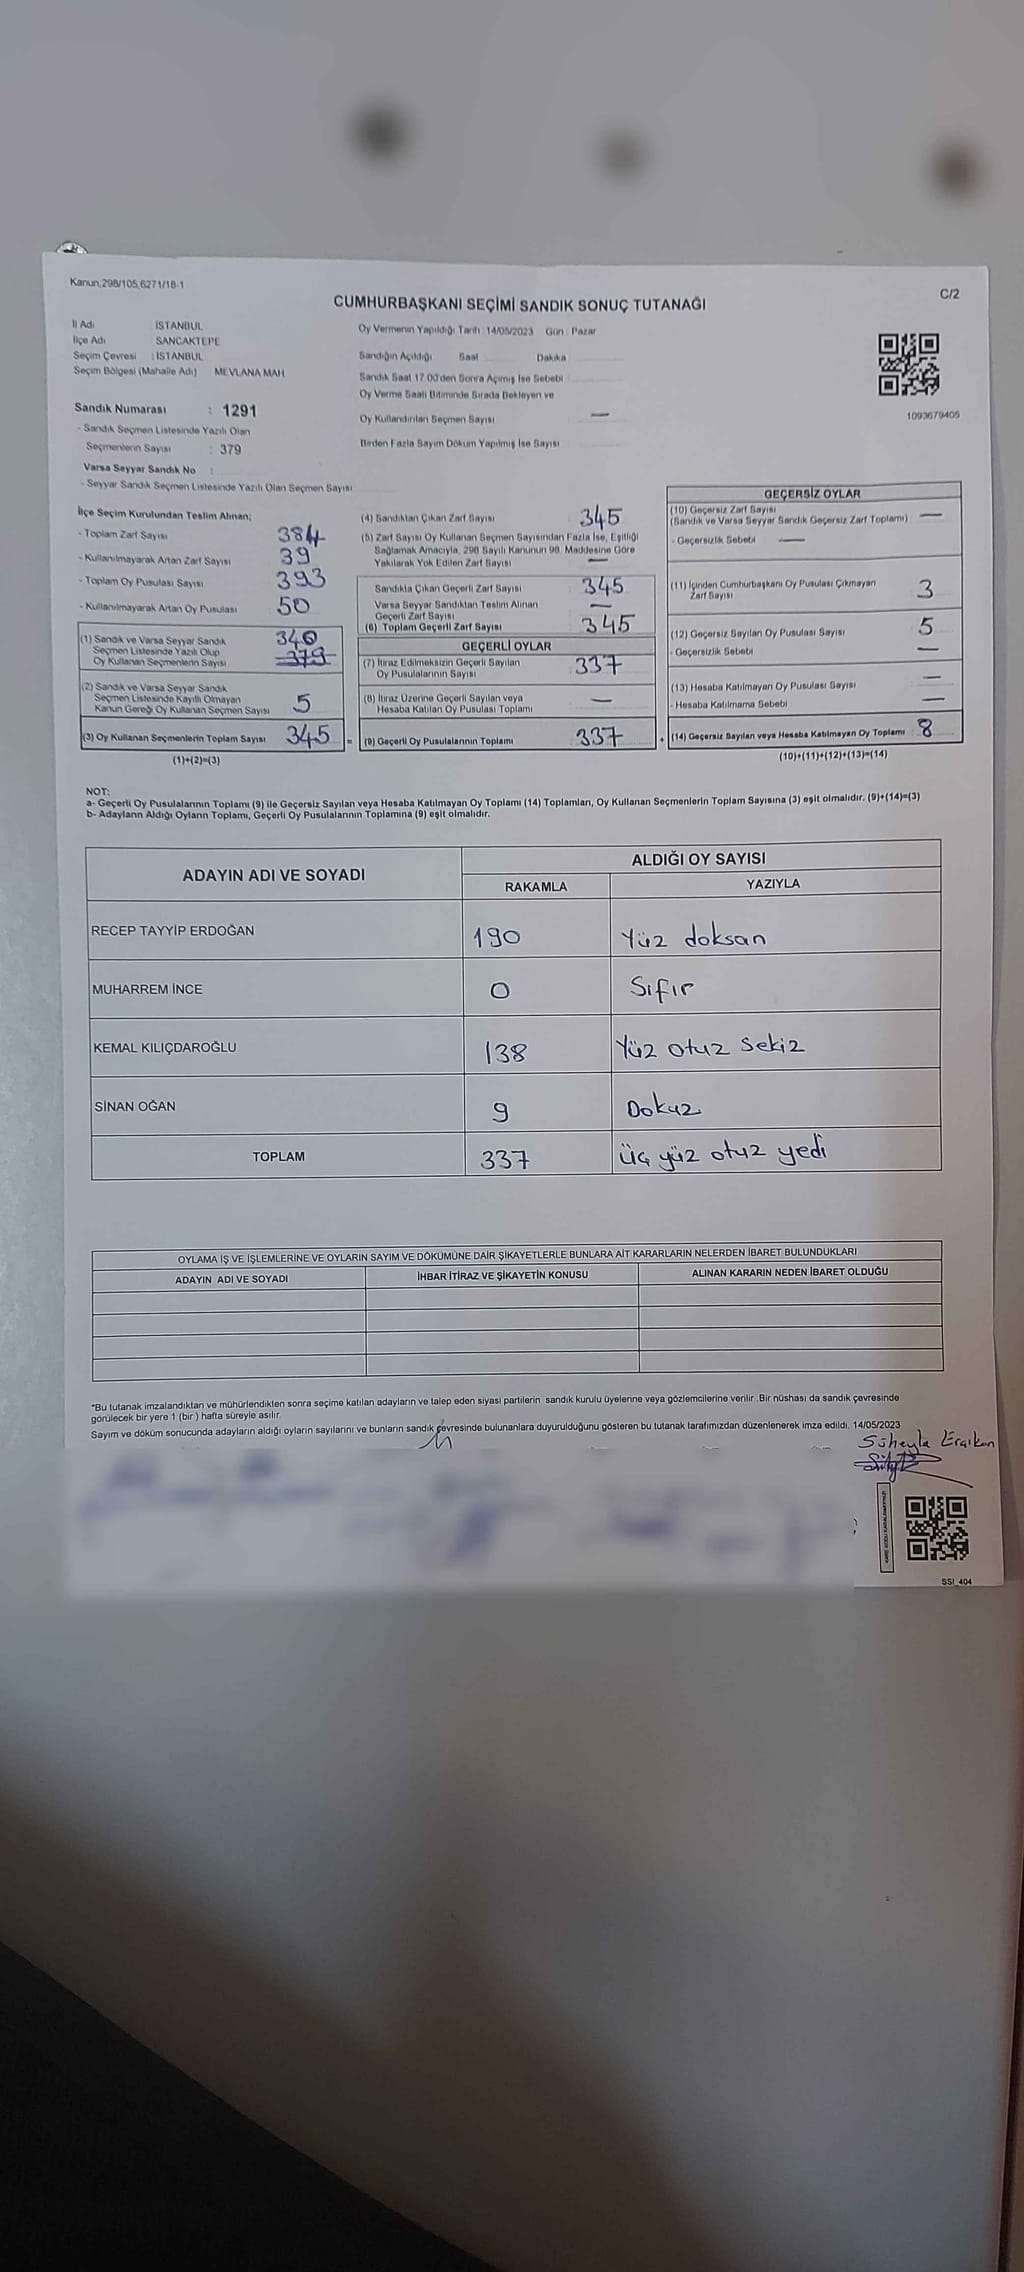 Kanun,298/105,6271/18-1
C/2
CUMHURBAŞKANI SEÇİMİ SANDIK SONUÇ TUTANAĞI
İl Adı İSTANBUL
İlçe Adı SANCAKTEPE
Seçim Çevresi : İSTANBUL
Seçim Bölgesi (Mahalle Adı) MEVLANA MAH
Sandık Numarası : 1291
- Sandık Seçmen Listesinde Yazılı Olan
Seçmenlerin Sayısı : 379
Varsa Seyyar Sandık No :
- Seyyar Sandık Seçmen Listesinde Yazılı Olan Seçmen Sayısı
Oy Vermenin Yapıldığı Tarih : 14/05/2023 Gün : Pazar
Sandığın Açıldığı Saat Dakika
Sandık Saat 17.00'den Sonra Açımış İse Sebebi
Oy Verme Saati Bitiminde Sırada Bekleyen ve
Oy Kullandırılan Seçmen Sayısı —
Birden Fazla Sayım Döküm Yapılmış İse Sayısı
1093679405
İlçe Seçim Kurulundan Teslim Alınan;
- Toplam Zarf Sayısı 384
- Kullanılmayarak Artan Zarf Sayısı 39
- Toplam Oy Pusulası Sayısı 393
- Kullanılmayarak Artan Oy Pusulası 50
(1) Sandık ve Varsa Seyyar Sandık 340
Seçmen Listesinde Yazılı Olup 379
Oy Kullanan Seçmenlerin Sayısı
(2) Sandık ve Varsa Seyyar Sandık
Seçmen Listesinde Kayıtlı Olmayan
Kanun Gereği Oy Kullanan Seçmen Sayısı 5
(3) Oy Kullanan Seçmenlerin Toplam Sayısı 345 =
(1)+(2)=(3)
(4) Sandıktan Çıkan Zarf Sayısı 345
(5) Zarf Sayısı Oy Kullanan Seçmen Sayısından Fazla İse, Eşitliği
Sağlamak Amacıyla, 298 Sayılı Kanunun 98. Maddesine Göre
Yakılarak Yok Edilen Zarf Sayısı —
Sandıkta Çıkan Geçerli Zarf Sayısı 345
Varsa Seyyar Sandıktan Teslim Alınan
Geçerli Zarf Sayısı —
(6) Toplam Geçerli Zarf Sayısı 345
GEÇERLİ OYLAR
(7) İtiraz Edilmeksizin Geçerli Sayılan
Oy Pusulalarının Sayısı 337
(8) İtiraz Üzerine Geçerli Sayılan veya
Hesaba Katılan Oy Pusulası Toplamı —
(9) Geçerli Oy Pusulalarının Toplamı 337 +
GEÇERSİZ OYLAR
(10) Geçersiz Zarf Sayısı
(Sandık ve Varsa Seyyar Sandık Geçersiz Zarf Toplamı) —
- Geçersizlik Sebebi —
(11) İçinden Cumhurbaşkanı Oy Pusulası Çıkmayan
Zarf Sayısı 3
(12) Geçersiz Sayılan Oy Pusulası Sayısı 5
- Geçersizlik Sebebi —
(13) Hesaba Katılmayan Oy Pusulası Sayısı —
- Hesaba Katılmama Sebebi —
(14) Geçersiz Sayılan veya Hesaba Katılmayan Oy Toplamı : 8
(10)+(11)+(12)+(13)=(14)
NOT:
a- Geçerli Oy Pusulalarının Toplamı (9) ile Geçersiz Sayılan veya Hesaba Katılmayan Oy Toplamı (14) Toplamları, Oy Kullanan Seçmenlerin Toplam Sayısına (3) eşit olmalıdır. (9)+(14)=(3)
b- Adayların Aldığı Oyların Toplamı, Geçerli Oy Pusulalarının Toplamına (9) eşit olmalıdır.
ADAYIN ADI VE SOYADI
ALDIĞI OY SAYISI
RAKAMLA YAZIYLA
RECEP TAYYİP ERDOĞAN 190 Yüz doksan
MUHARREM İNCE 0 Sıfır
KEMAL KILIÇDAROĞLU 138 Yüz otuz sekiz
SİNAN OĞAN 9 Dokuz
TOPLAM 337 üç yüz otuz yedi
OYLAMA İŞ VE İŞLEMLERİNE VE OYLARIN SAYIM VE DÖKÜMÜNE DAİR ŞİKAYETLERLE BUNLARA AİT KARARLARIN NELERDEN İBARET BULUNDUKLARI
ADAYIN ADI VE SOYADI İHBAR İTİRAZ VE ŞİKAYETİN KONUSU ALINAN KARARIN NEDEN İBARET OLDUĞU
*Bu tutanak imzalandıktan ve mühürlendikten sonra seçime katılan adayların ve talep eden siyasi partilerin sandık kurulu üyelerine veya gözlemcilerine verilir. Bir nüshası da sandık çevresinde
görülecek bir yere 1 (bir) hafta süreyle asılır.
Sayım ve döküm sonucunda adayların aldığı oyların sayılarını ve bunların sandık çevresinde bulunanlara duyurulduğunu gösteren bu tutanak tarafımızdan düzenlenerek imza edildi. 14/05/2023
Süheyla
SSI_404